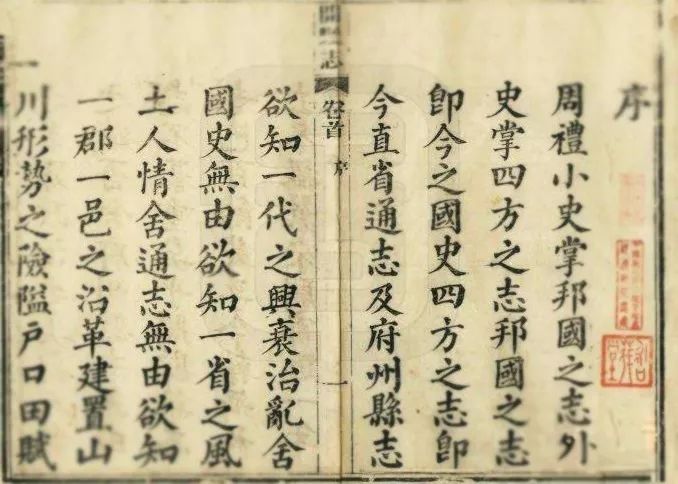 序
周禮小史掌邦國之志外
史掌四方之志邦國之志
卽今之國史四方之志卽
今直省通志及府州縣志
志
卷首
序
一
欲知一代之興衰治亂舍
國史無由欲知一省之風
土人情舍通志無由欲知
一郡一邑之沿革建置山
川形勢之險隘戶口田賦